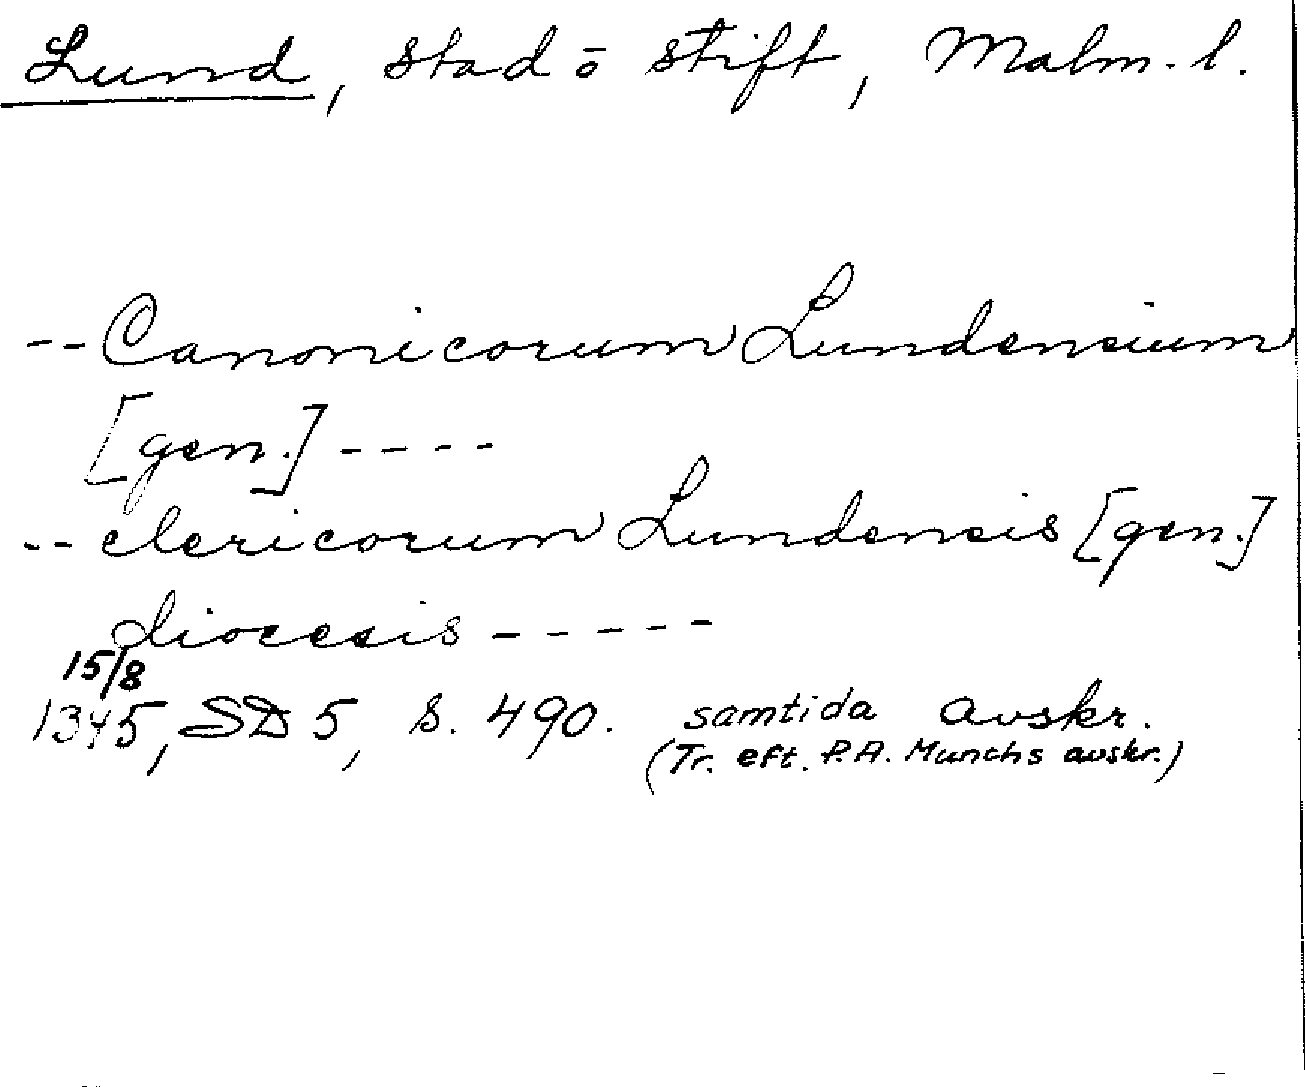 Lund, stad ō stift, Malm. l.
-- Canonicorum Lundensium
[gen.] ----
-- clericorum Lundensis [gen.]
diocesis -----
15/8
1345, SD 5, s. 490. samtida avskr.
(Tr. eft. P.A. Munchs avskr.)